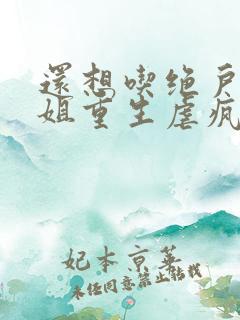 還想喫绝戶
姐重生虐疯
妃本京華
未经同意禁止转载